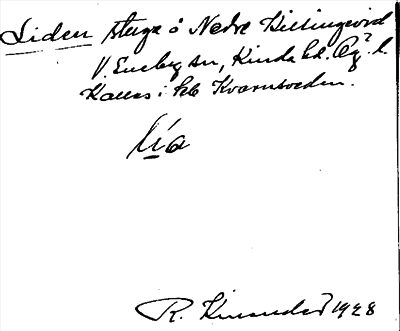 Liden stuga å Nedre Billingsvid
V. Eneby sn, Kinda hd. Ög. l.
Kallas i kb Kvarnsveden.
lía
R. Kinander 1928